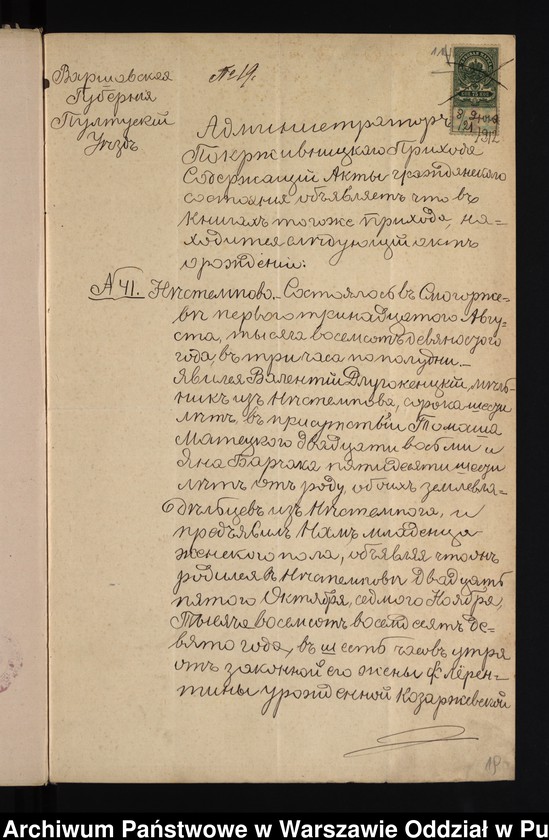 Варшавская
Губернія
Пултускій
Уѣздъ
№ 19.
114
8/21 Іюня 1912
Администраторъ
Покрживницкаго Прихода
Содержащій Акты гражданскаго
состоянія объявляетъ что въ
книгахъ тогоже прихода, на=
ходится слѣдующій актъ
о рожденіи:
№ 41. Нѣстемпово. Состоялось въ Смогорже=
вѣ первого тринадцатого Авгу=
ста, тысяча восемсотъ девяностого
года, въ три часа пополудни. –
Явился Валентій Длугоженцкій, мѣль=
никъ изъ Нѣстемпова, сорока шести
лѣтъ, въ присутствіи Томаша
Матецкого двадцати восьми и
Яна Барчака пятидесяти шести
лѣтъ отъ роду, обоихъ землевла=
дѣльцевъ изъ Нѣстемпога, и
предъявилъ Намъ младенца
женского пола, объявляя что онъ
родился въ Нѣстемповѣ Двадцать
пятого Октября, седмого Ноября,
Тысяча восемсотъ восемдесятъ де=
вятого года, въ шесть часовъ утра
отъ законной его жены Флёрен=
тины урожденной Козаржевской
19
Archiwum Państwowe w Warszawie Oddział w Pu